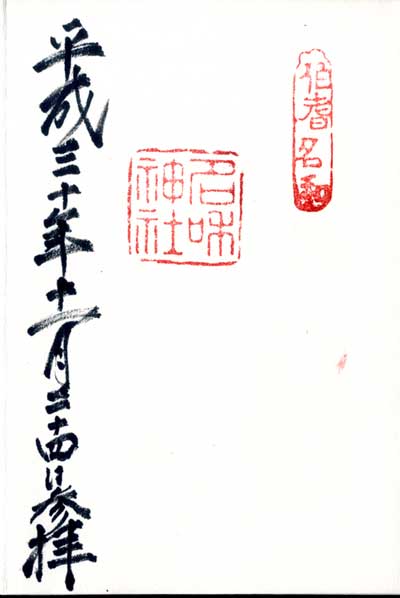 伯耆名和
名咊
神社
平成三十年十一月二十四日参拝